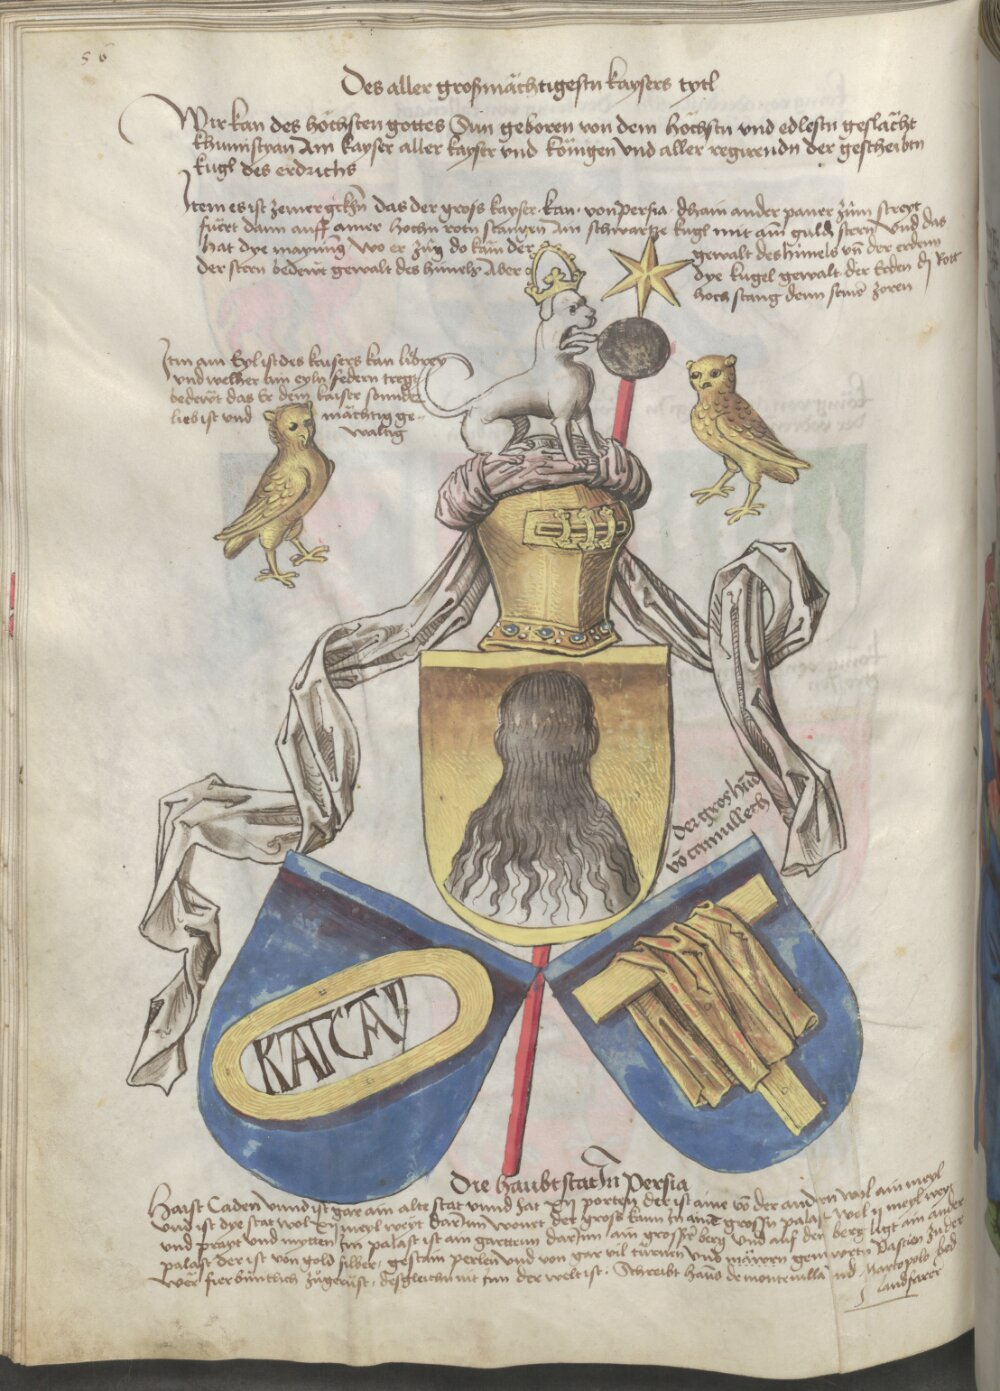 56
Des aller großmächtigestn kaysers tytl
Wir kan des höchsten gottes Sun geboren von dem höchstn und edlestn geslächt
khumistyan Am kayser aller kayser und königen und aller regirendn der gescheibtn
kugl des erdrichs
Item es ist zemergkhn das der gros kayser kan von persia dhain ander paner zum streyt
fuert dann auff ainer hochn rotn stangen Ain schwartze kugl mit aim guldn stern Und das
hat dye maynung wo er züg do kam der gewalt des himels und der erdem
der stern bedewt gewalt des himels Aber dye kugel gewalt der Erden dy Rott
hoch stang denn seine zoren
Itm ain Eyl ist des kaisers kan librey
und welher ain eyln federn tregt
bedewt das Er dem kaiser sonnder
lieb ist und mächtig ge-
waltig
der gros hund
vo camillech
KATCAY
Die haubtstat In Persia
Haist Caden unnd ist gar ain alte stat unnd hat xij porten der ist aine vo der andern wol ain meyl
und ist dye stat wol xij meyl weyt darInn wonet der gross kann In aine grossn palast wol ij meyl weyt
und prayt und mytten Im palast ist ain gartten darInn ain grosser berg und auf den berg ligt ain ander
palast der ist von gold silber gestain perlen und von gar vil turnen und mawrn gemwrtn Pastien zu der
wer fier büntlich zugerüst desgleichn nit inn der welt ist Schreibt hans de montevilla und Marcopolo bed
landfarer